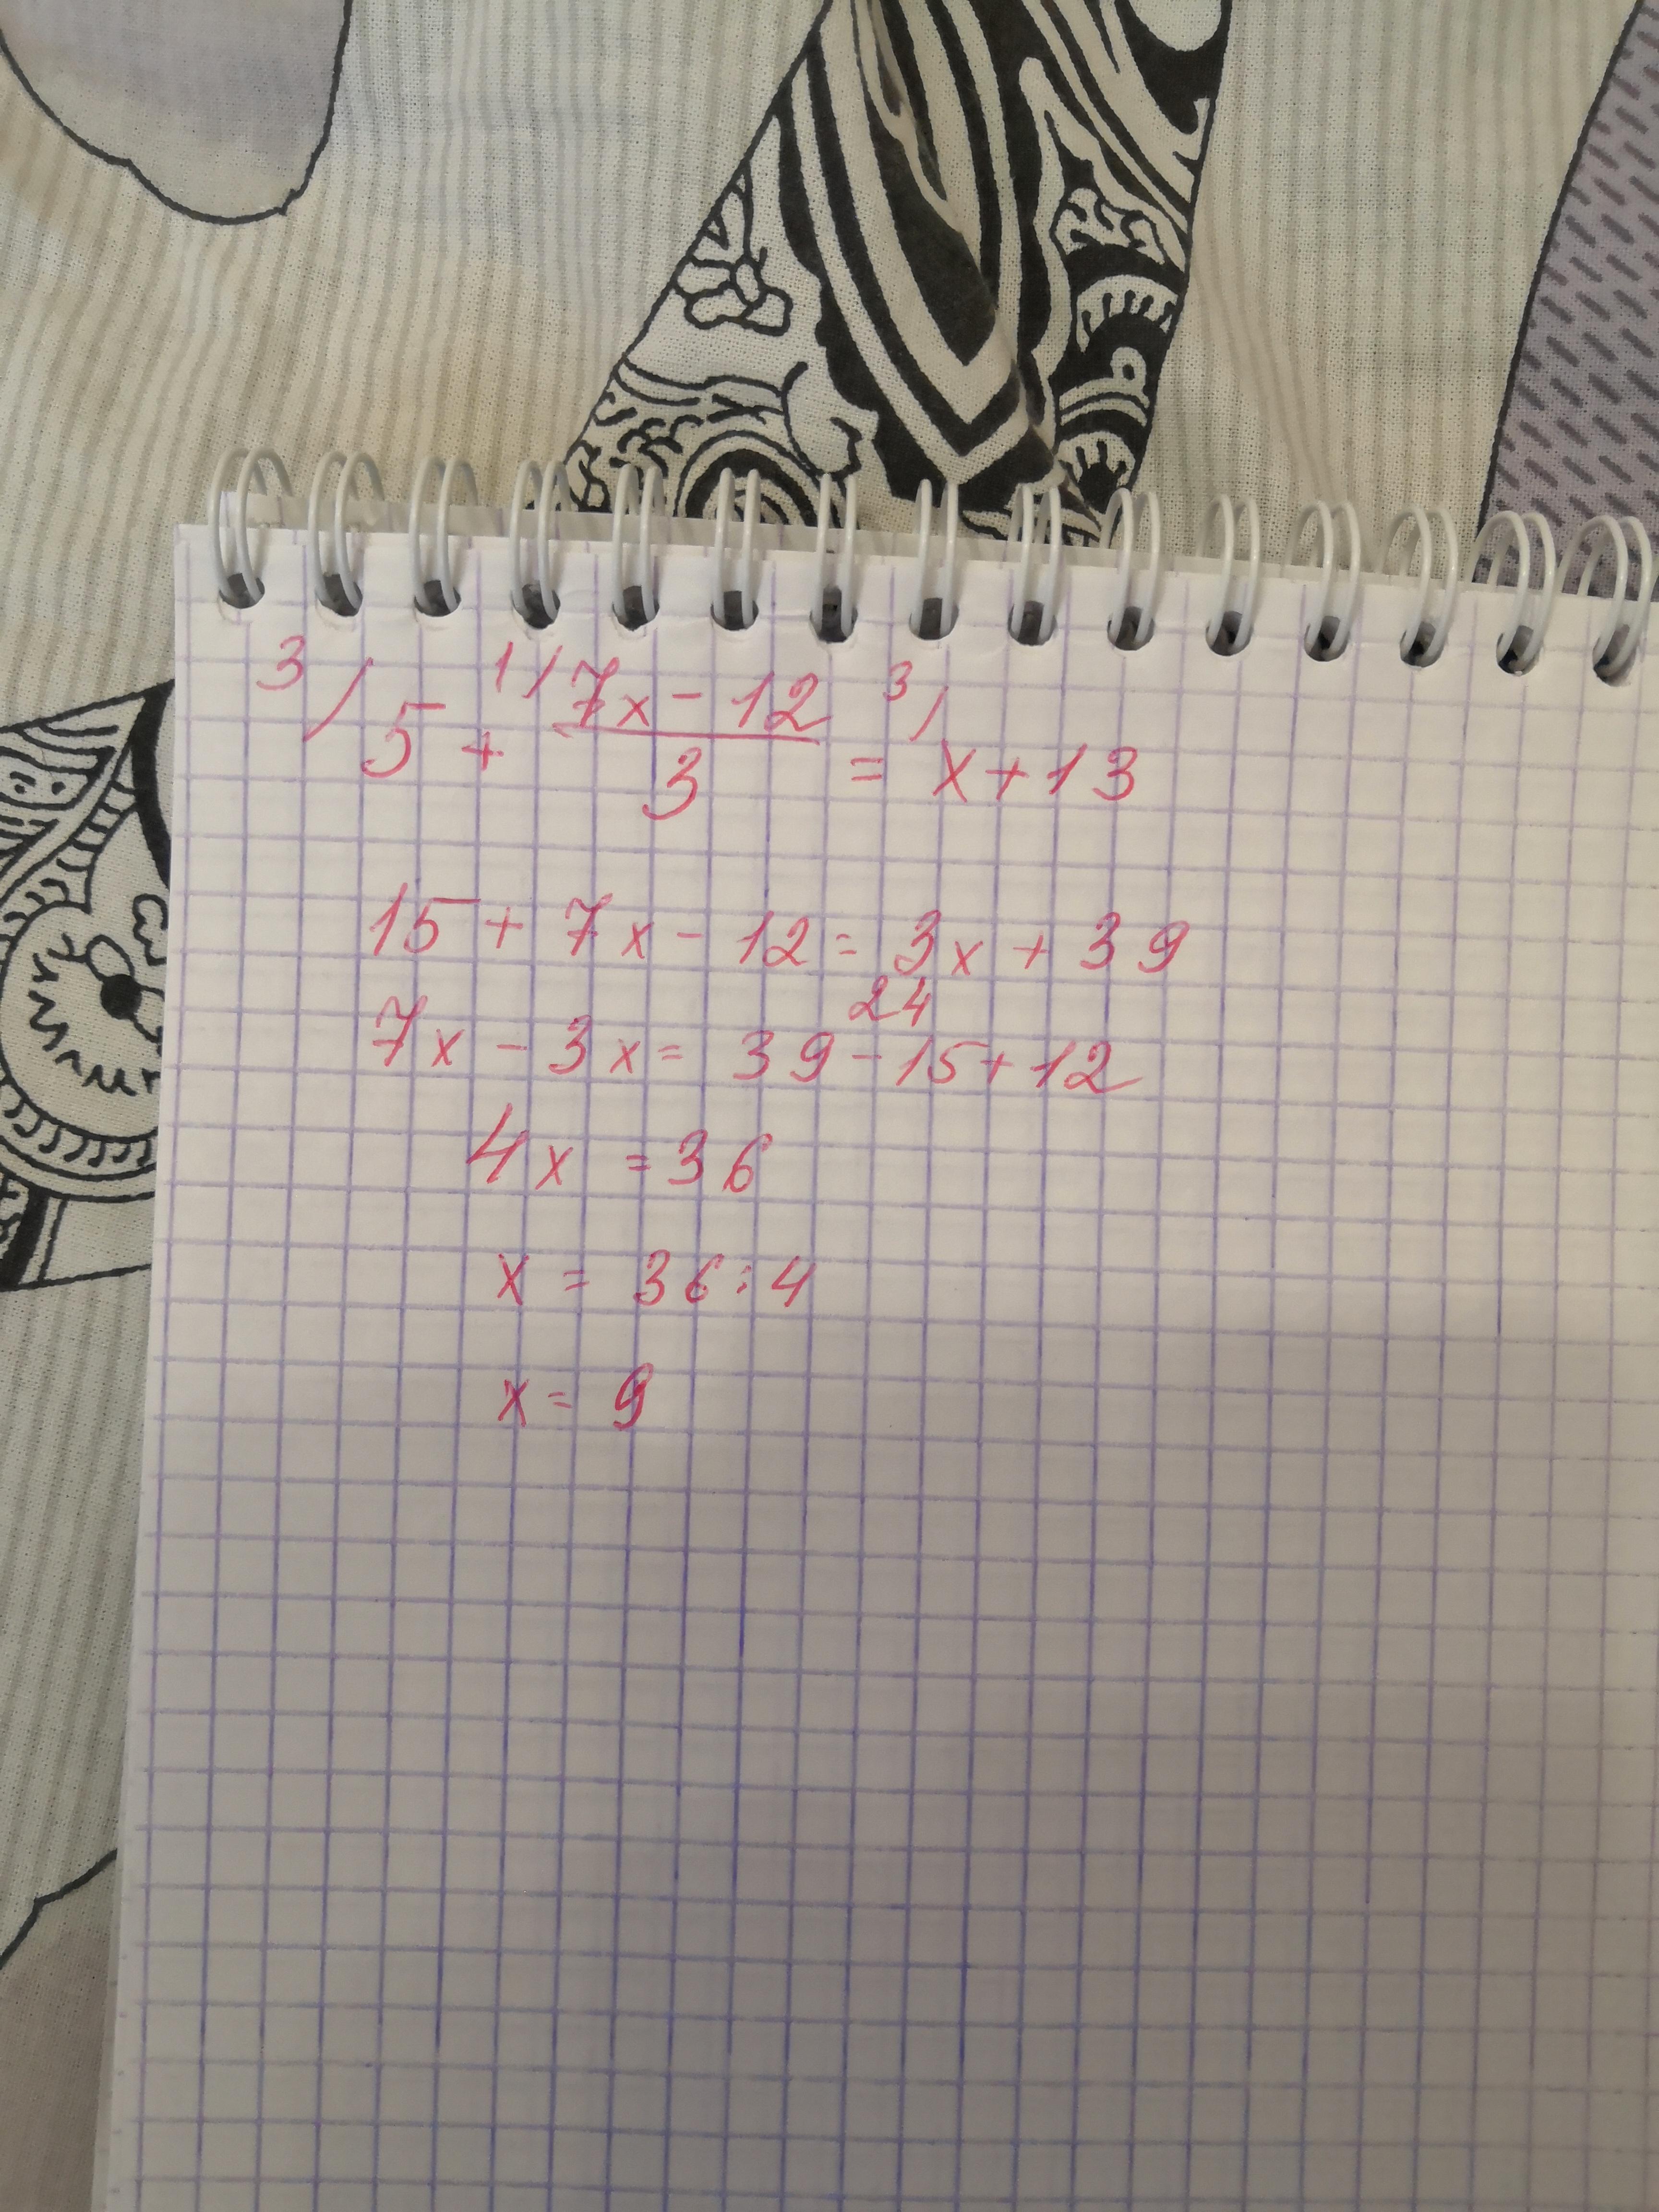 3/ 5 + 1/ 7x - 12 / 3 = 3/ x + 13
15 + 7x - 12 = 3x + 39
24
7x - 3x = 39 - 15 + 12
4x = 36
x = 36 : 4
x = 9